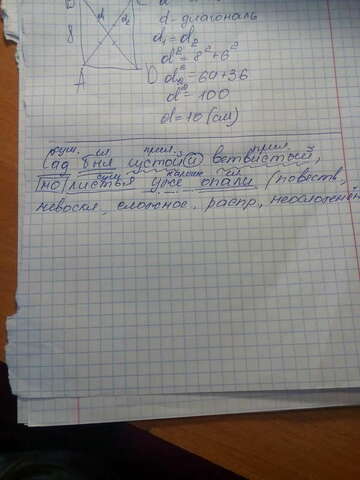 8 d d₂
A D
d - диагональ
d₁ = d₂
d² = 8² + 6²
d² = 64 + 36
d² = 100
d = 10 (см)
сущ. гл прил. прил.
Сад был густой и ветвистый,
сущ наречие гл
но листья уже опали (повеств,
невоскл, сложное, распр, неосложнен